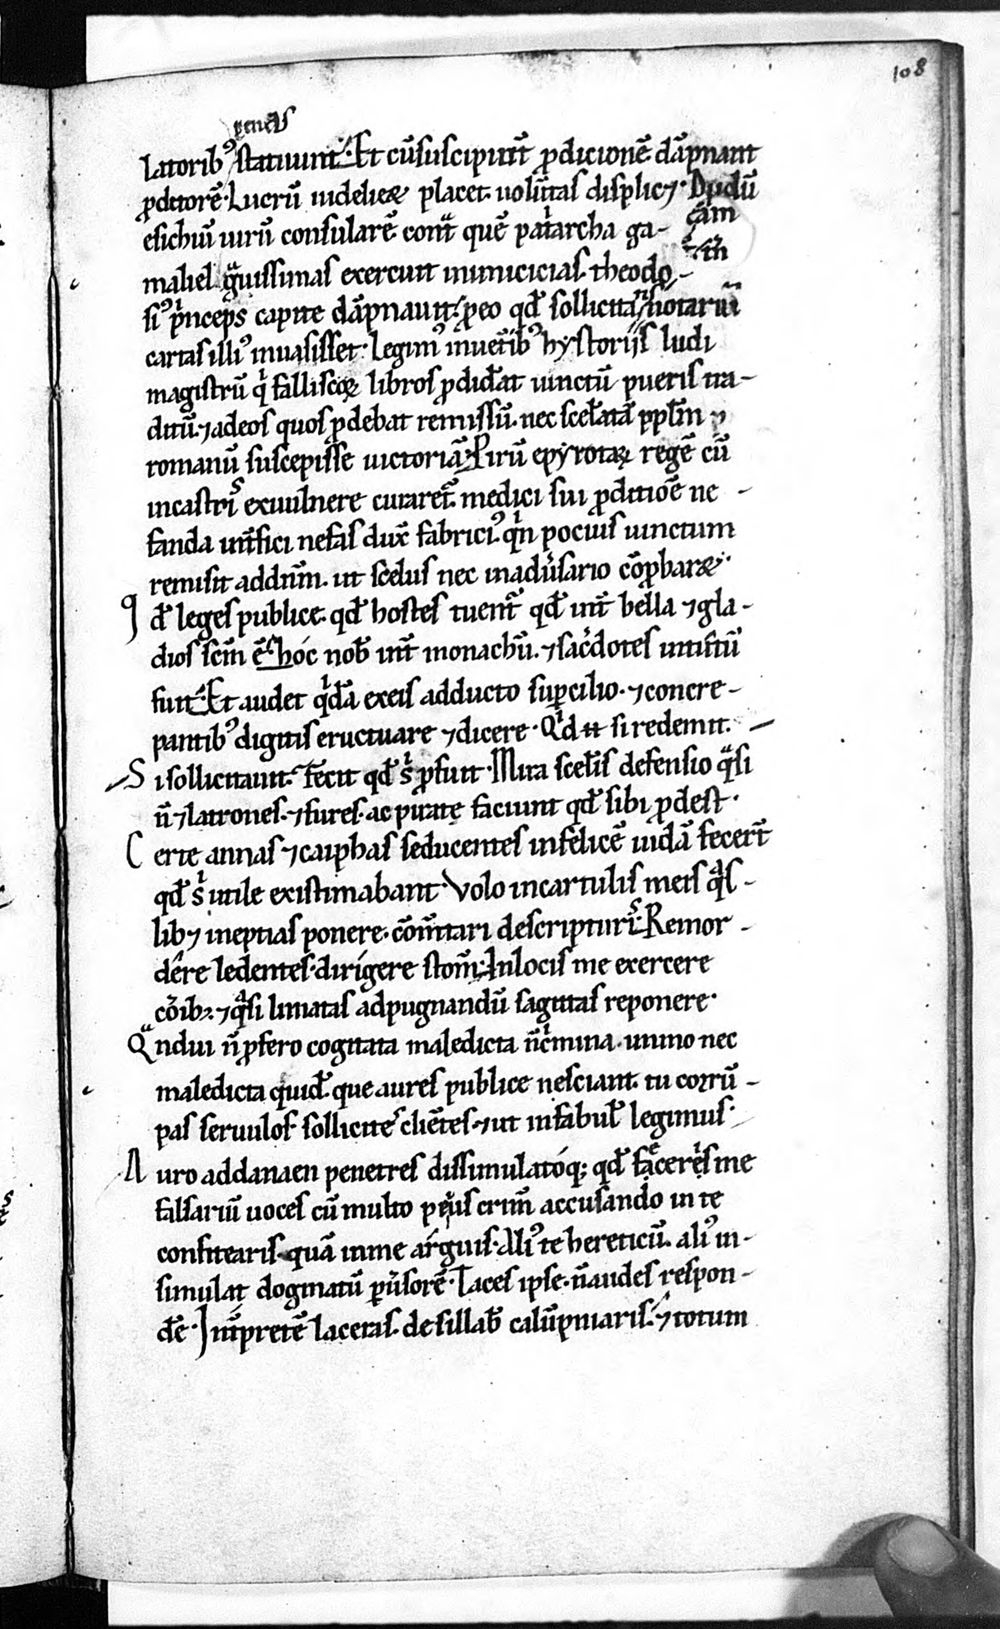 108
penas
latorib⁹ statuunt. Et cū suscipiūt ꝓdicionē dāpnant
ꝓditorē. Lucrū uideliceꝫ placet. uolūtas displicꝫ. Dudū
esichiū uirū consularē cont̄ quē patⁱarcha ga-
maliel gᵃuissimas exercuit inimicicias. theodo-
si⁹ pⁱnceps capite dāpnauit. ꝓ eo qd̄ sollicitato notariū
cartas illi⁹ inuasisset. Legim⁹ in uet̄ib⁹ hystoriis ludi
magistrū qⁱ falliscoꝝ libros ꝓdid̄at uinctū pueris tra-
ditū. ⁊ ad eos quos ꝓdebat remissū. nec scel̄atā pp̄lm
romanū suscepisse uictoriā. Pirū epyrotaꝝ regē cū
in castris ex uulnere curaret̄ medici sui ꝓditiōe ne-
fanda int̄fici nefas dux̄ fabrici⁹. qⁱn pocius uinctum
remisit ad dn̄m. ut scelus nec in adūsario cōꝓbaret.
qd̄ leges publice. qd̄ hostes tuent̄ qd̄ int̄ bella ⁊ gla-
dios sc̄m ē. hóc nob̄ int̄ monachū. ⁊ sac̄dotes intutū
fuit. Et audet qⁱdā ex eis adducto suꝑcilio. ⁊ concre-
pantib⁹ digitis eructuare ⁊ dicere. Qⁱd .n. si redemit.
Si sollicitauit. Fecit qd̄ sⁱ ꝓfuit. Mira scel̄is defensio qᵃsi
n̄ ⁊ latrones. ⁊ fures. ac pirate faciunt qd̄ sibi ꝓdest.
Certe annas ⁊ caiphas seducentes infelicē iudā fecert̄
qd̄ sⁱ utile existimabant. Volo in cartulis meis qᵃs-
libꝫ ineptias ponere. cōm̄tari de scripturis. Remor-
dēre ledentes. dirigere stom̄. In locis me exercere
cōib⁹. ⁊ qᵃsi limatas ad pugnandū sagittas reponere.
Qᵃndui n̄ ꝓfero cogitata maledicta n̄ cⁱmina. immo nec
maledicta quid̄. que aures publice nesciant. tu corrū-
pas seruulos. sollicites cliētes. ⁊ ut in fabul̄ legimus.
Auro ad danaen penetres dissimulatóq; qd̄ feceris me
falsariū uoces cū multo peius crim̄ accusando in te
confitearis. quā in me arguis. Ali⁹ te hereticū. ali⁹ in-
simulat dogmatū ꝑūsorē. Taces ipse. n̄ audes respon-
d̄e. Int̄pretē laceras. de sillab̄ calūpniaris. ⁊ totum